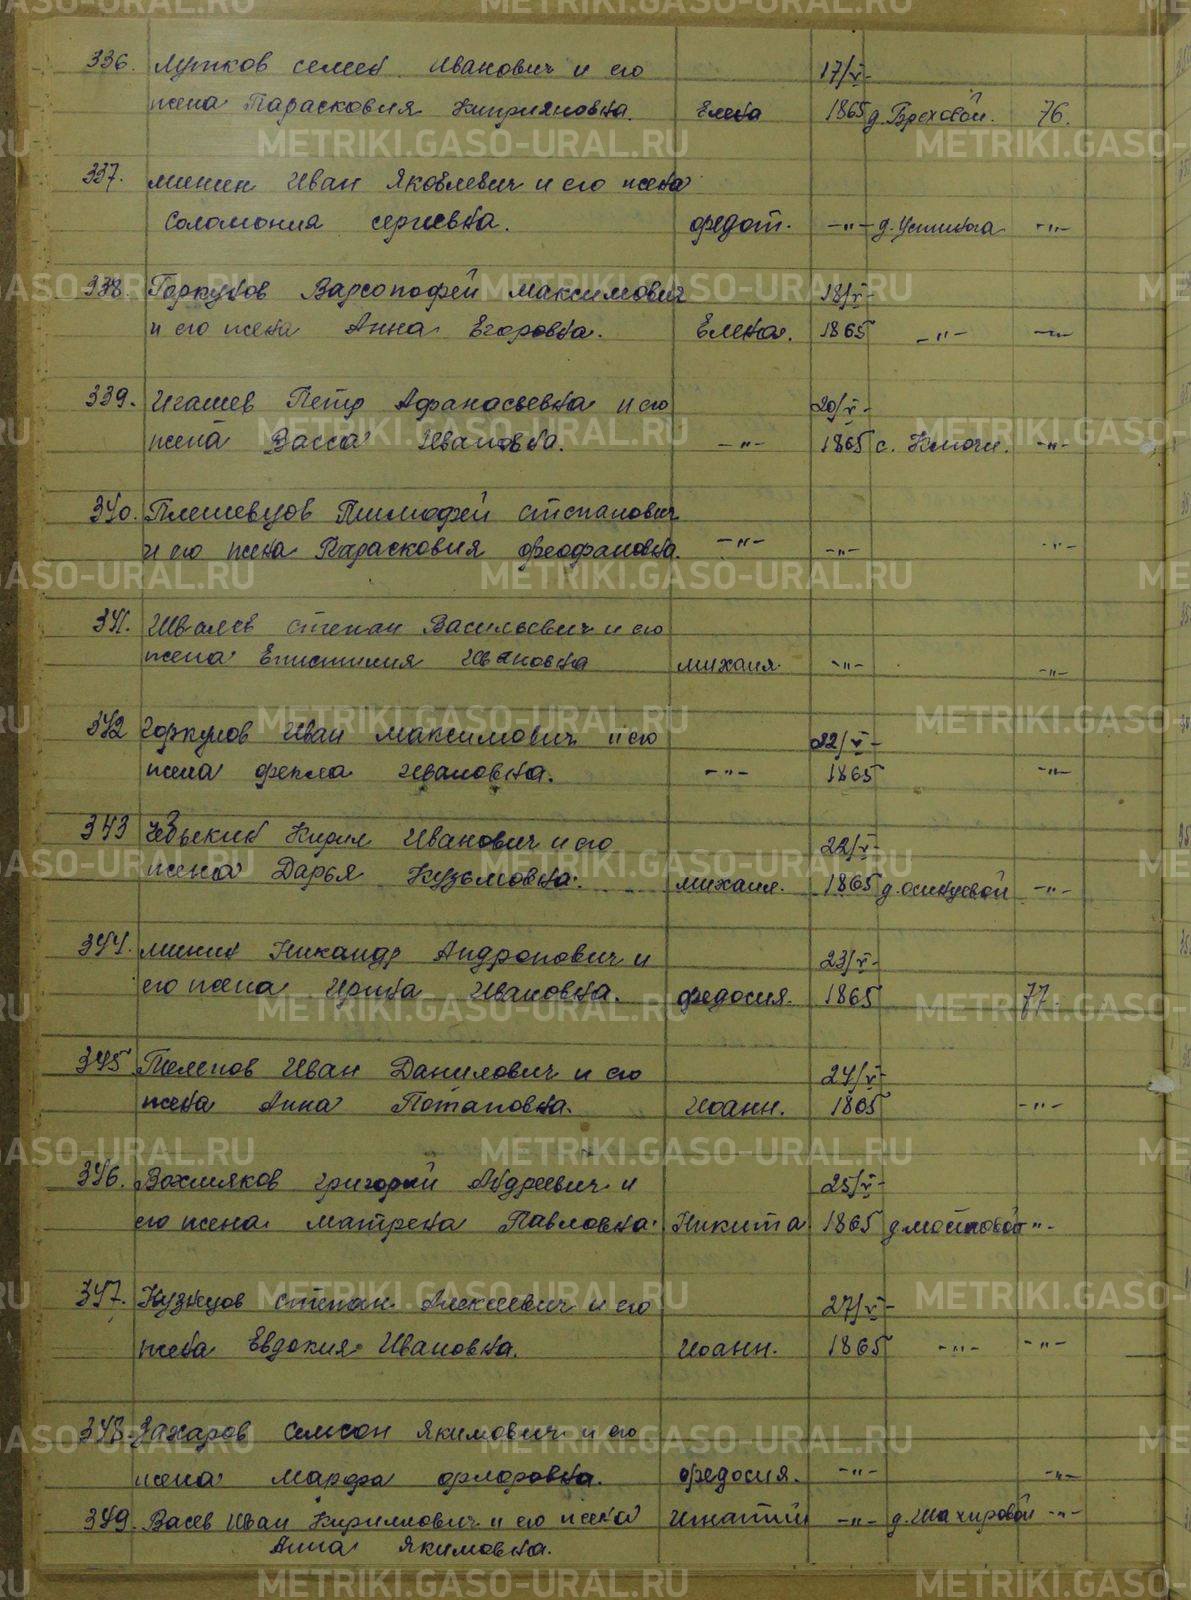 336. Лутков Семен Иванович и его 17/V-
жена Парасковия Киприяновна. Елена 1865 д. Бреховой. 76.
337. Минин Иван Яковлевич и его жена
Соломония Сергиевна. Федот. -"- д. Устинова -"-
338. Горкунов Варсонофей Максимович 18/V-
и его жена Анна Егоровна. Елена. 1865 -"- -"-
339. Игашев Петр Афанасьевна и его 20/V-
жена Васса Ивановна. -"- 1865 с. Ключи. -"-
340. Плешевцов Тимофей Степанович
и его жена Парасковия Феофановна. -"- -"- -"-
341. Ивалев Степан Васильевич и его
жена Епистимия Ивановна Михаил -"- -"-
342 Горкунов Иван Максимович и его 22/V-
жена Фекла Ивановна. -"- 1865 -"-
343 Кирил Иванович и его 22/V-
жена Дарья Кузьмовна. Михаил. 1865 д. Осинцевой -"-
344. Минин Никандр Андронович и 23/V-
его жена Ирина Ивановна. Федосия. 1865 77.
345 Теленов Иван Данилович и его 24/V-
жена Анна Потаповна. Иоанн. 1865 -"-
346. Вахмяков Григорий Андреевич и 25/V-
его жена Матрена Павловна. Никита 1865 -"-
347. Кузнецов Степан Алексеевич и его 27/V-
жена Евдокия Ивановна. Иоанн. 1865 -"- -"-
348. Захаров Самсон Якимович и его
жена Марфа Флоровна. Федосия. -"- -"-
349. Васев Иван Кириллович и его жена Игнатий -"- д. Шакировой -"-
Анна Якимовна.
METRIKI.GASO-URAL.RU